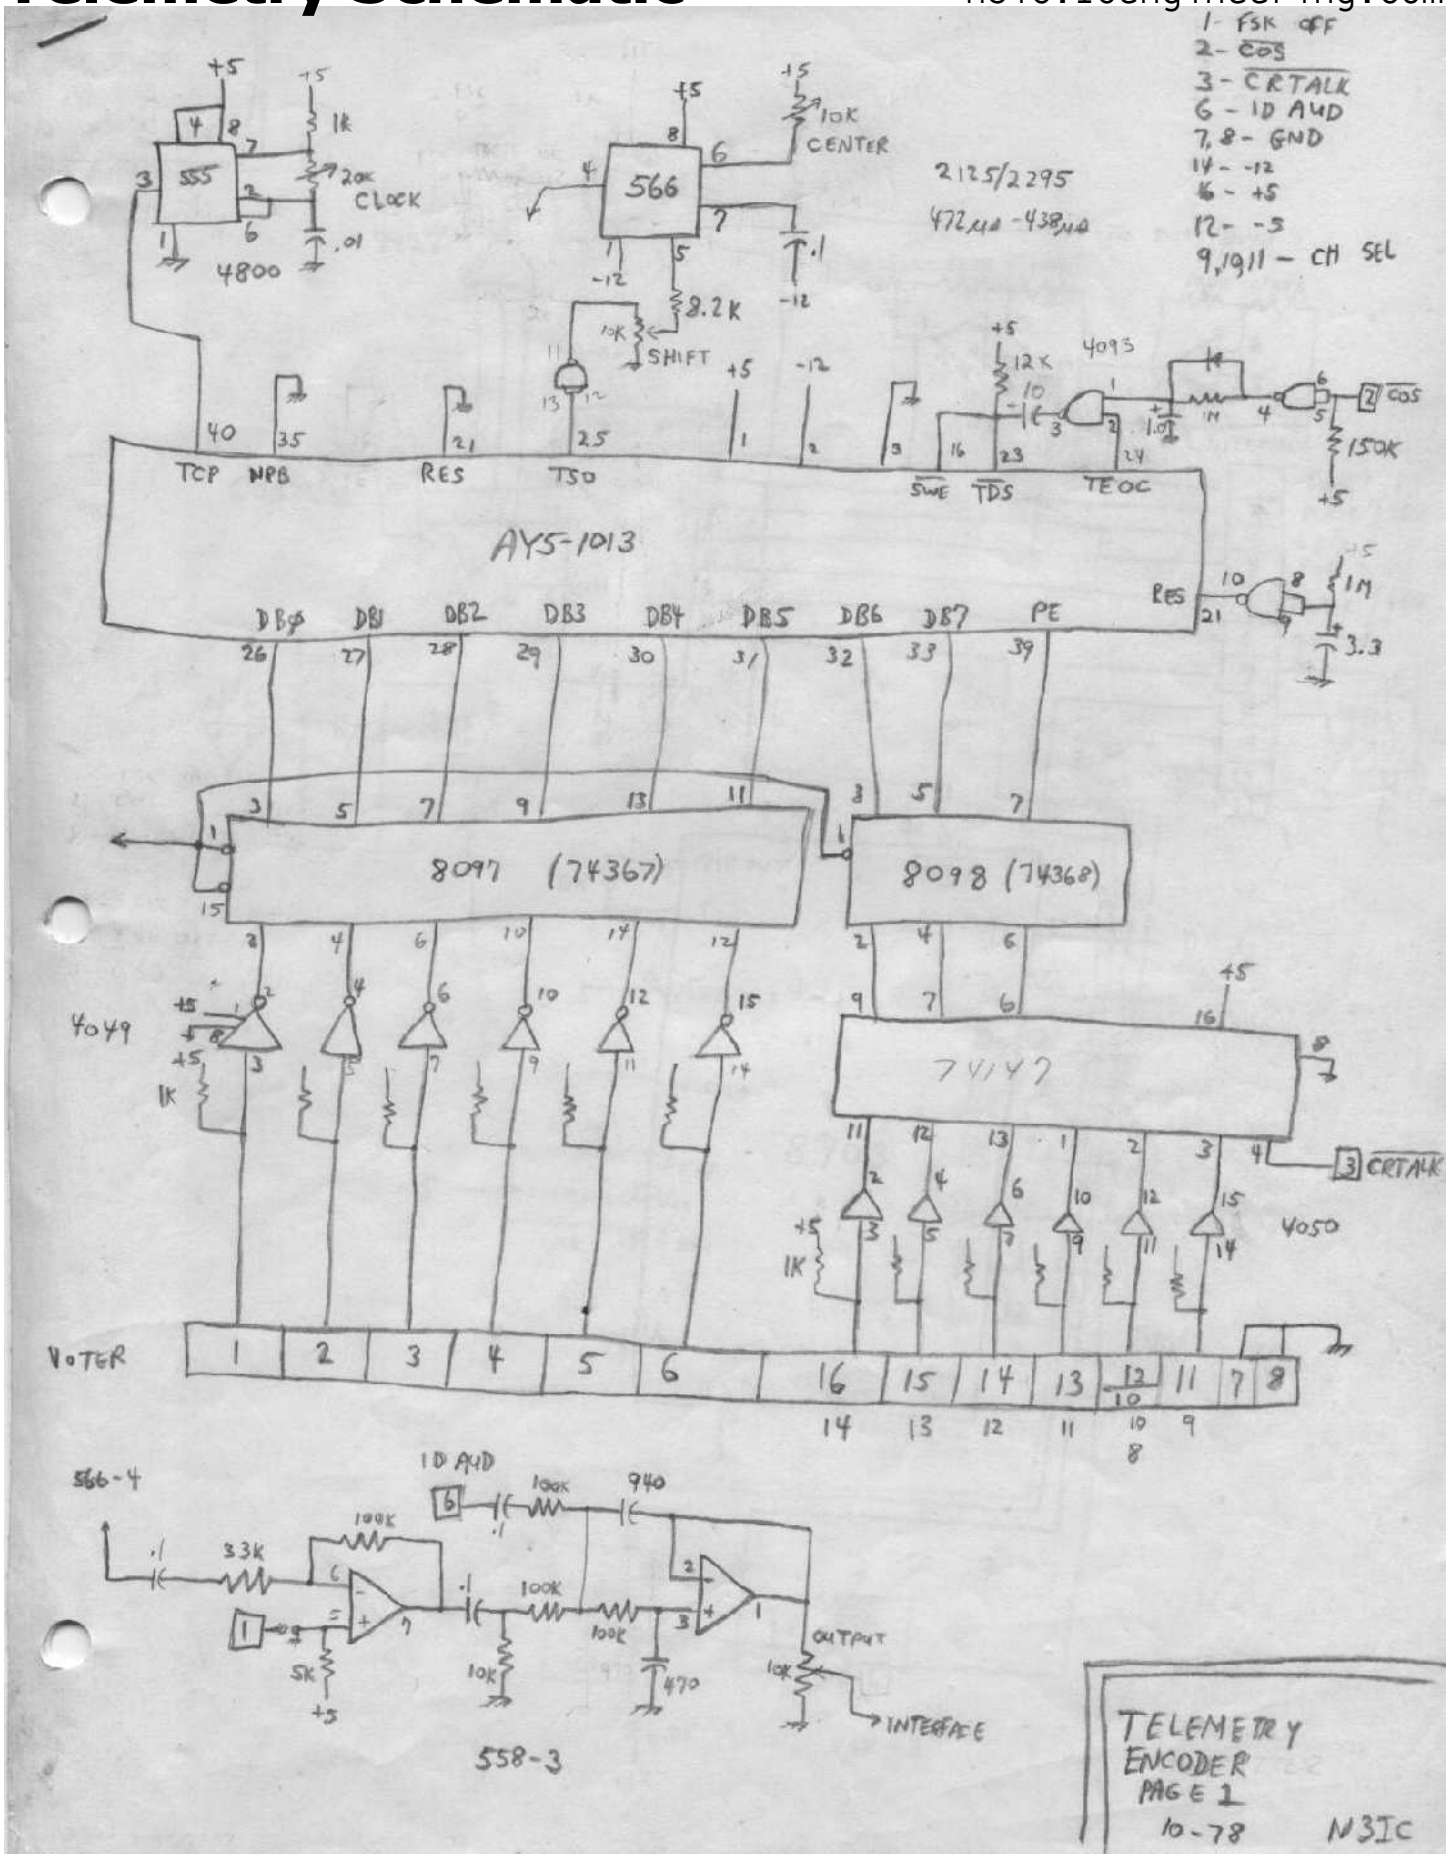 Telemetry Schematic
1- FSK OFF
2- COS
3- CRTALK
6- ID AUD
7,8- GND
14- -12
16- +5
12- -5
9,10,11- CH SEL
+5
+5
4 8 7
1K
3 555 2
20K
CLOCK
1 6
.01
4800
+5
+5
8 6
10K
CENTER
4 566 7
1 5
.1
-12
-12
8.2K
10K
SHIFT
2125/2295
11
13 12
+5
-12
+5
12K
4093
10
3 1 2
1.0
1M
4 6 5
2 COS
150K
+5
40 35 21 25 1 2 3 16 23 24
TCP NPB RES TSO SWE TDS TEOC
AY5-1013
RES 21
10 8 9
+5
1M
3.3
DB0 DB1 DB2 DB3 DB4 DB5 DB6 DB7 PE
26 27 28 29 30 31 32 33 39
3 5 7 9 13 11 3 5 7
1 8097 (74367)
1 8098 (74368)
15
2 4 6 10 14 12 2 4 6
9 7 6 16 +5
4049
+5 1 2 4 6 10 12 15
8
+5
3 5 7 9 11 14
1K
74147 8
11 12 13 1 2 3 4
3 CRTALK
2 4 6 10 12 15
+5
3 5 7 9 11 14
4050
1K
VOTER
1 2 3 4 5 6 16 15 14 13 12 11 7 8
10
14 13 12 11 10 9
8
566-4
ID AUD
6 .1 100K 940
100K
.1 33K 6 - .1 100K 100K 2 -
1 5 + 7 3 + 1
5K
+5
10K
470
OUTPUT
10K
INTERFACE
558-3
TELEMETRY
ENCODER
PAGE 1
10-78 N3IC